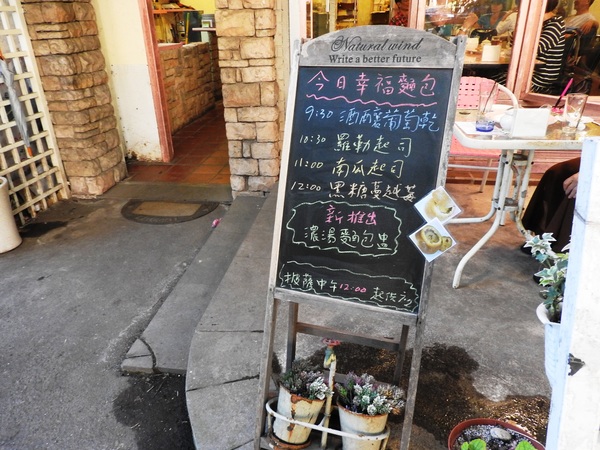 Natural wind
Write a better future
今日幸福麵包
9:30 酒釀葡萄乾
10:30 羅勒起司
11:00 南瓜起司
12:00 黑糖蔓越莓
新推出
濃湯麵包盅
披薩中午12:00起供应